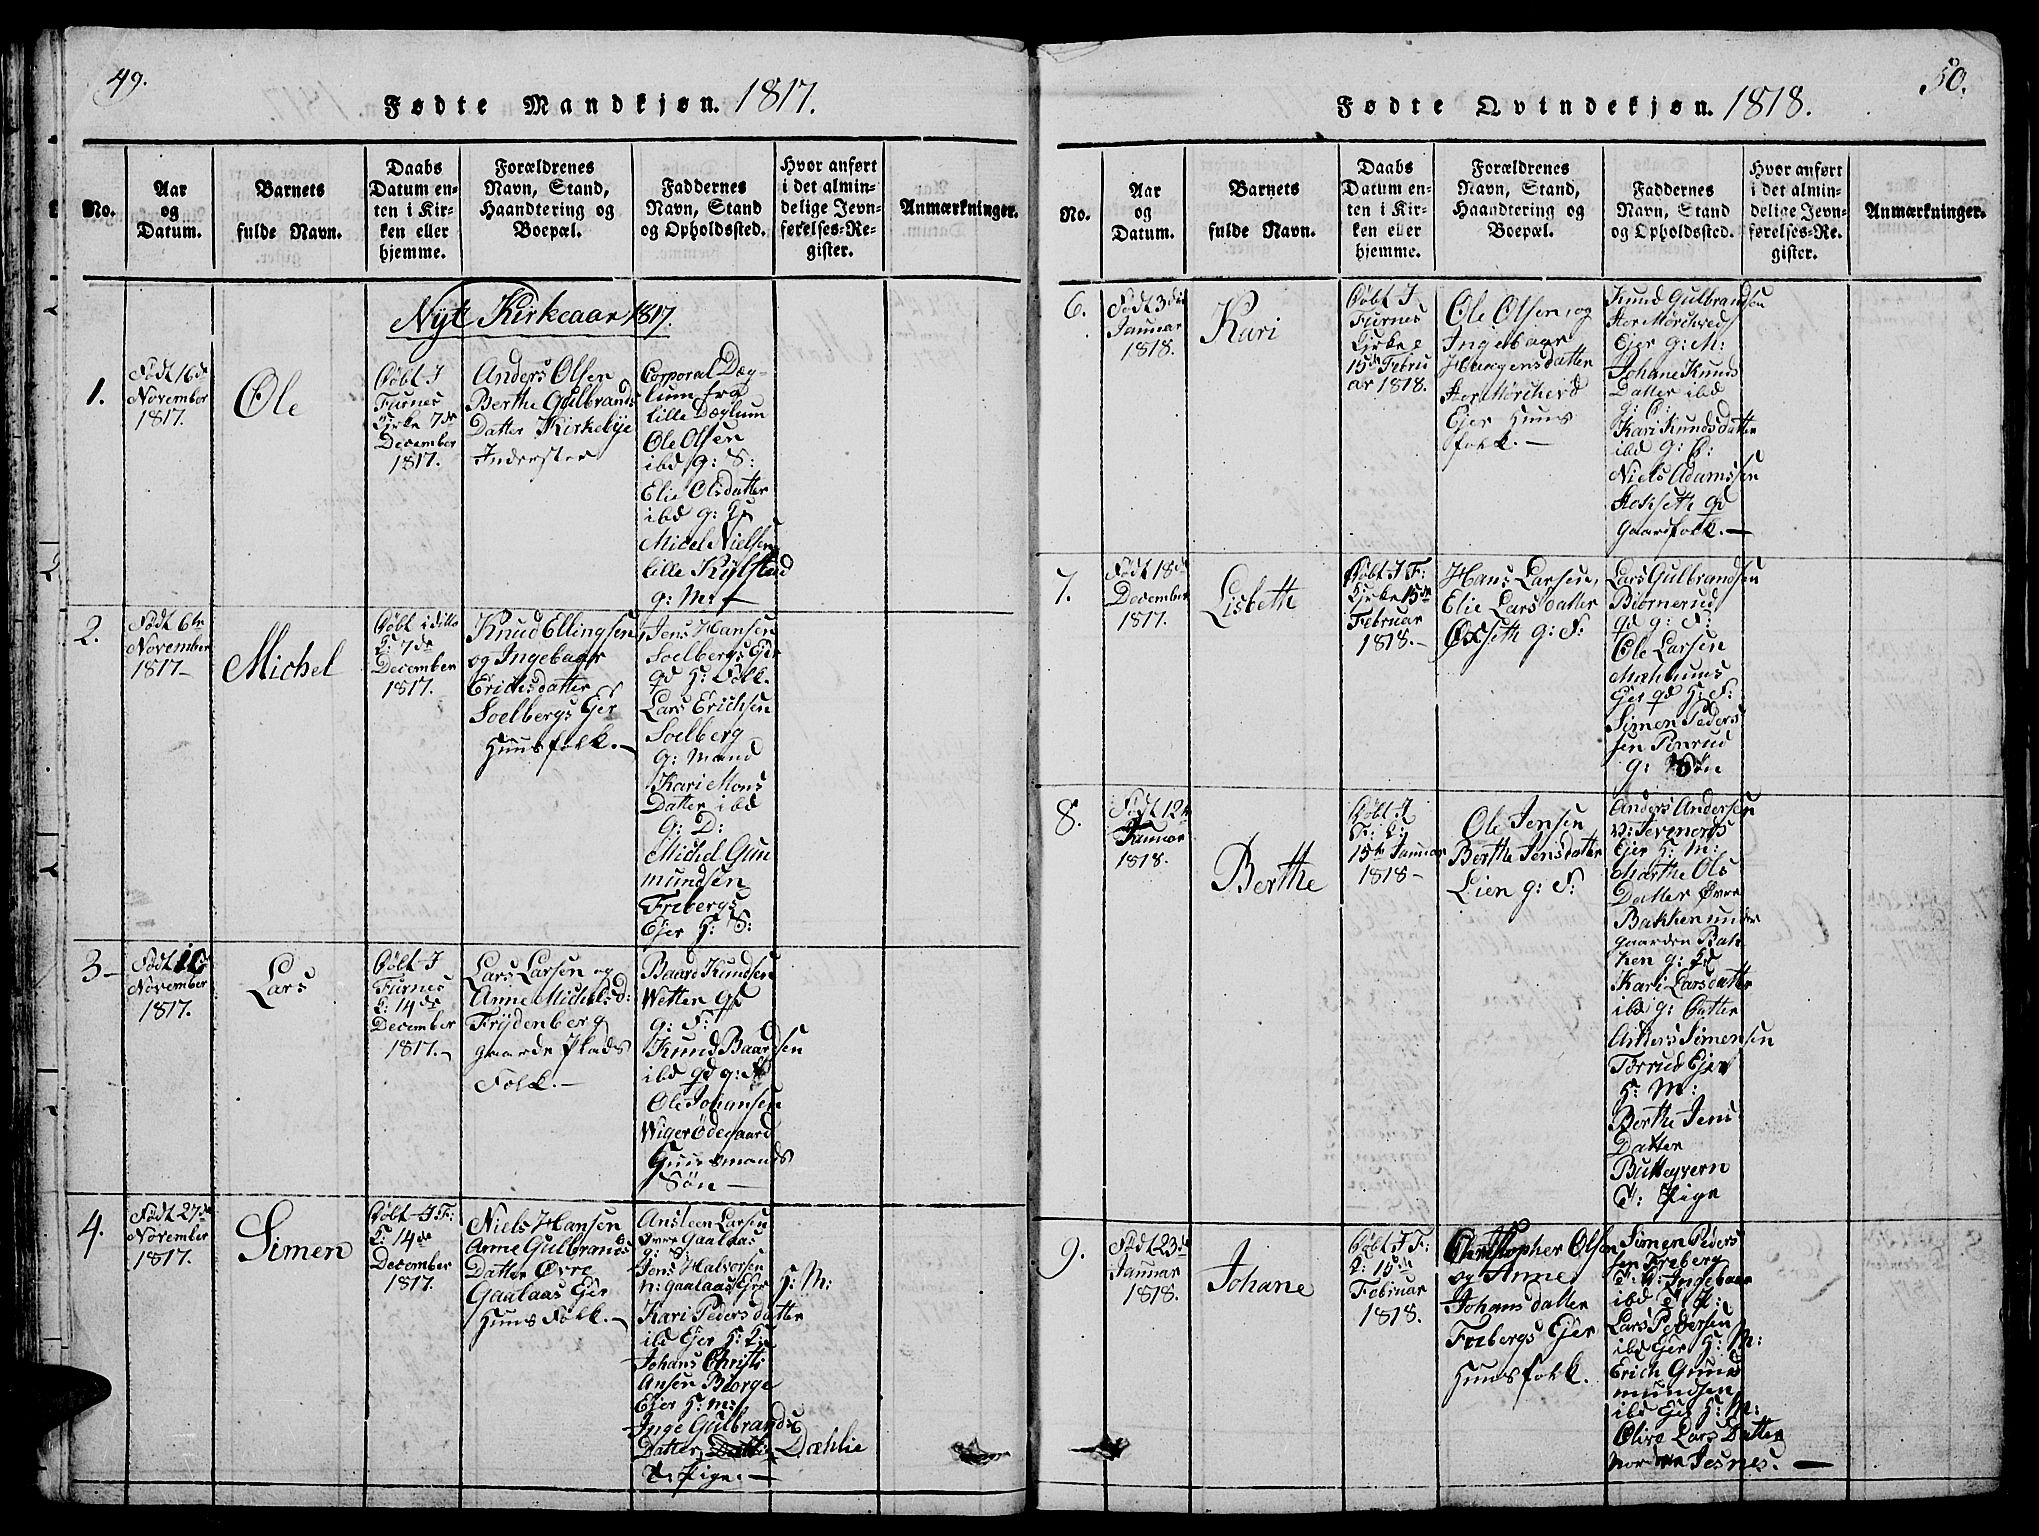 49.
Fødte Mandkjøn. 1817.
No.
Aar
og
Datum.
Barnets
fulde Navn.
Daabs
Datum en-
ten i Kir-
ken eller
hjemme.
Forældrenes
Navn, Stand,
Haandtering og
Boepæl.
Faddernes
Navn, Stand
og Opholdssted.
Hvor anført
i det almin-
delige Jevn-
førelses-Re-
gister.
Anmærkninger.
Nyt Kirkeaar 1817.
1.
Født 16de
November
1817.
Ole
Døbt I
Furnes
Kirke 7de
December
1817.
Anders Olsen
Berthe Gulbrands
Datter Kirkebye
Inderster
Corporal Dæg-
lum fra
lille Dæglum
Ole Olsen
ibd g: S:
Elie Olsdatter
ibd g:
Micel Nielsen
lille Kylstad
g: M:
2.
Født 6te
November
1817
Michel
Døbt i ditto
K: 7de
December
1817.
Knud Ellingsen
og Ingebaar
Erichsdatter
Soelbergs Ejer
Huusfolk.
Jens Hansen
Soelbergs Ejer
gd H: Folk.
Lars Erichsen
Soelberg
g: Mand
Kari Mons
Datter ibd
g: D:
Michel Gun
mundsen
Frebergs
Ejer H: S:
3
Født 10
November
1817.
Lars
Døbt I
Furnes
K: 14de
December
1817.
Lars Larsen og
Anne Michelsd:
Frydenberg
gaarde Plads
Folk.
Baard Knudsen
Wetter gd
g: F:
Knud Baardsen
ibd gd g: S
Ole Johansen
Wigerødegaard
Huusmands
Søn
4.
Født 27de
November
1817.
Simen
Døbt I F:
K: 14de
December
1817.
Niels Hansen
Anne Gulbrands
Datter Øvre
Gaalaas Ejer
Huus Folk.
Ansteen Larsen
Øvre Gaalaas
g: S:
Jens Halvorsen
n: gaalaas Ejer H: M:
Kari Peders datter
ibd Ejer H: K:
Johans Christi
Ansen Biørge
Ejer H: M:
Inge Gulbrands
Datter Dæhlie
T: Pige.
50.
Fødte Qvindekjøn. 1818.
No.
Aar
og
Datum.
Barnets
fulde Navn.
Daabs
Datum en-
ten i Kir-
ken eller
hjemme.
Forældrenes
Navn, Stand,
Haandtering og
Boepæl.
Faddernes
Navn, Stand
og Opholdssted.
Hvor anført
i det almin-
delige Jevn-
førelses-Re-
gister.
Anmærkninger.
6.
Født 3die
Januar
1818.
Kari
Døbt I
Furnes
Kirke
15de Febru
ar 1818.
Ole Olsen, og
Ingebaar
Haagensdatter
Stor Mørchved
Ejer Huus
folk.
Knud Gulbrandsen
Stor Mørchveds
Ejer g: M:
Johane Knuds
Datter ibd
g: D:
Kari Knudsdatter
ibd g: D:
Niels Adamssen
Stokseth gd
Gaardfolk.
7.
Født 18de
December
1817.
Lisbeth
Døbt I F:
Kirke 15de
Februar
1818.
Hans Larsen,
Elie Larsdatter
Øxseth g: F:
Lars Gulbrandsen
Biørnerud
gd g: F:
Ole Larsen
Mæhlums
Ejer gd H: F:
Simen Peders
sen Penrud
g: Søn
8.
Født 12te
Januar
1818.
Berthe
Døbt I
F: K:
15de Januar
1818
Ole Jensen
Berthe Jensdatter
Lien g: F:
Anders Andersen
Ejer H: M:
Marthe Ols
Datter Øvre
Bakken under
gaarden Bak
ken g:
Kari Larsdatter
ibd g: Datter
Anders Simensen
Torrud Ejer
H: M:
Berthe Jens
Datter
Butteqvern
T: Pige
9.
Født 23de
Januar
1818.
Johane
Døbt I F:
K: 15de
Februar
1818.
Christopher Olsen
og Anne
Johansdatter
Frebergs Ejer
Huusfolk.
Simen Peders
sen Freberg
Ingebaar
ibd
Lars Pedersen
ibd Ejer H: M:
Erich Gund
mundsen
ibd Ejer H: M:
Olive Lars Datter
Nordre Jesnes.